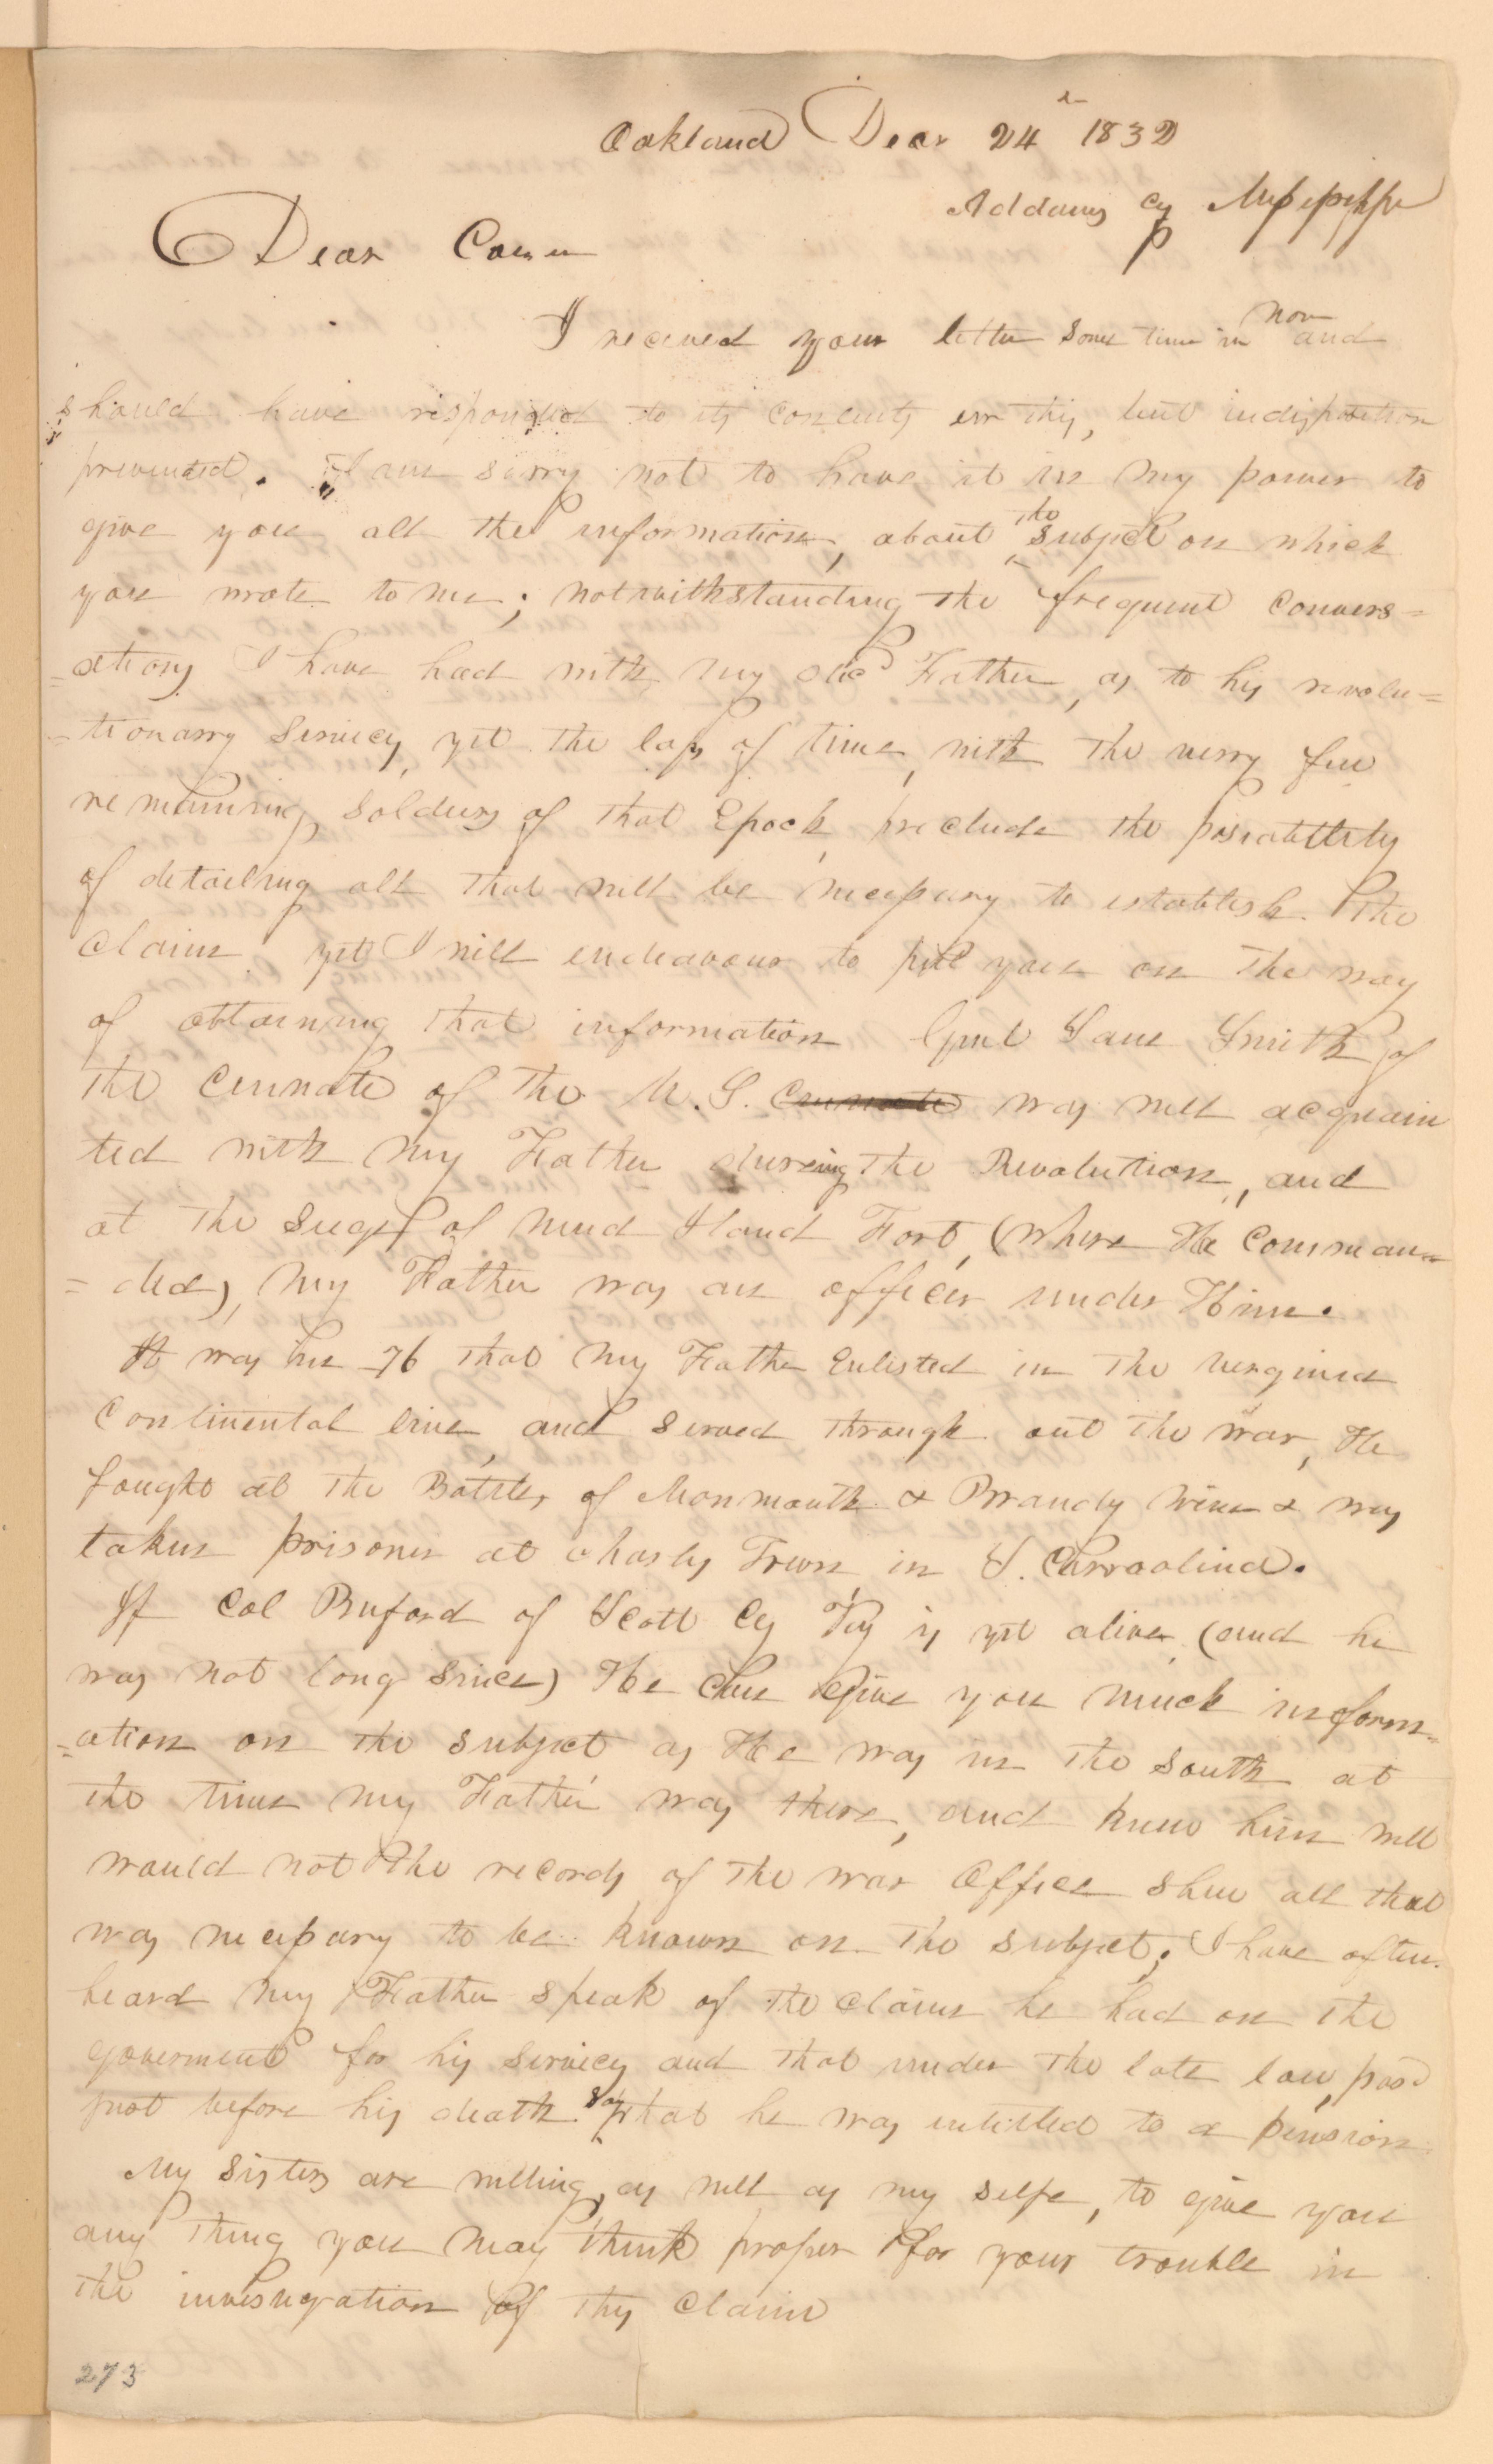 Oakland Decr 24th 1832
Addams Cy Mississippi
Dear Cosin
I receved your letter some time in Nov and
should have responded to its contents err this, but indisposition
prevented. I am sorry not to have it in my power to
give you all the information, about the subject on which
you wrote to me; notwithstanding the frequent convers=
=ations I have had with my old Father, as to his revolu=
=tionarry services, yet the laps of time, with the verry few
remaining soldiers of that Epock, preclude the posiabillity
of detailing all that will be necessary to establish the
claim yet I will endeavour to put you on the way
of obtaining that information Genl Saml Smith of
the Cennate of the U.S. Cennate was well acquain
ted with my Father during the Revolution, and
at the siege of mud Island Fort, (where He comman=
=ded), my Father was an officer under Him.
It was in 76 that my Father Enlisted in the verginia
Continental line, and served through out the war, He
fought at the Battles of Monmouth & Brandy wine & was
taken prisoner at Charls Town in S. Carroolina.
If Col Buford of Scott Cy Ky is yet alive (and he
was not long since) He can Give you much inform=
=ation on the subject as He was in the south at
the time my Father was there, and knew him well
would not the records of the war Office shew all that
was necessary to be known on the subject; I have often
heard my Father speak of the claim he had on the
goverment for his services and that under the late law, pasd
just before his death say that he was intitled to a pension
My sisters are willing, as well as my selfe, to give you
any thing you may think proper for your trouble in
the investigation of this claim
273